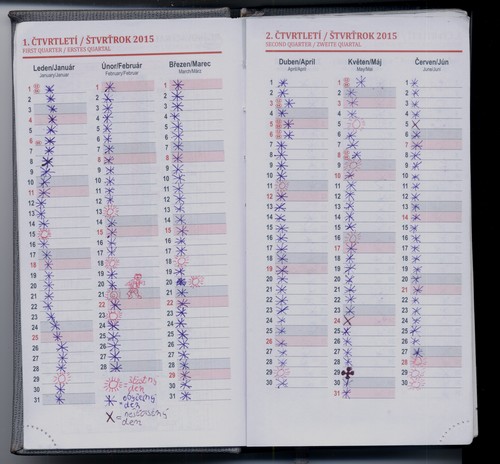 1. ČTVRTLETÍ / ŠTVRŤROK 2015
FIRST QUARTER / ERSTES QUARTAL
Leden/Január
January/Januar
Únor/Február
February/Februar
Březen/Marec
March/März
1 1 1
2 2 2
3 3 3
4 4 4
5 5 5
6 6 6
7 7 7
8 8 8
9 9 9
10 10 10
11 11 11
12 12 12
13 13 13
14 14 14
15 15 15
16 16 16
17 17 17
18 18 18
19 19 19
20 20 20
21 21 21
22 22 22
23 23 23
24 24 24
25 25 25
26 26 26
27 27 27
28 28 28
29 29
30 30
31 31
= šťastný
den
= obyčejný
den
X = nešťastný
den
2. ČTVRTLETÍ / ŠTVRŤROK 2015
SECOND QUARTER / ZWEITE QUARTAL
Duben/Apríl
April/April
Květen/Máj
May/Mai
Červen/Jún
June/Juni
1 1 1
2 2 2
3 3 3
4 4 4
5 5 5
6 6 6
7 7 7
8 8 8
9 9 9
10 10 10
11 11 11
12 12 12
13 13 13
14 14 14
15 15 15
16 16 16
17 17 17
18 18 18
19 19 19
20 20 20
21 21 21
22 22 22
23 23 23
24 24 24
25 25 25
26 26 26
27 27 27
28 28 28
29 29 29
30 30 30
31